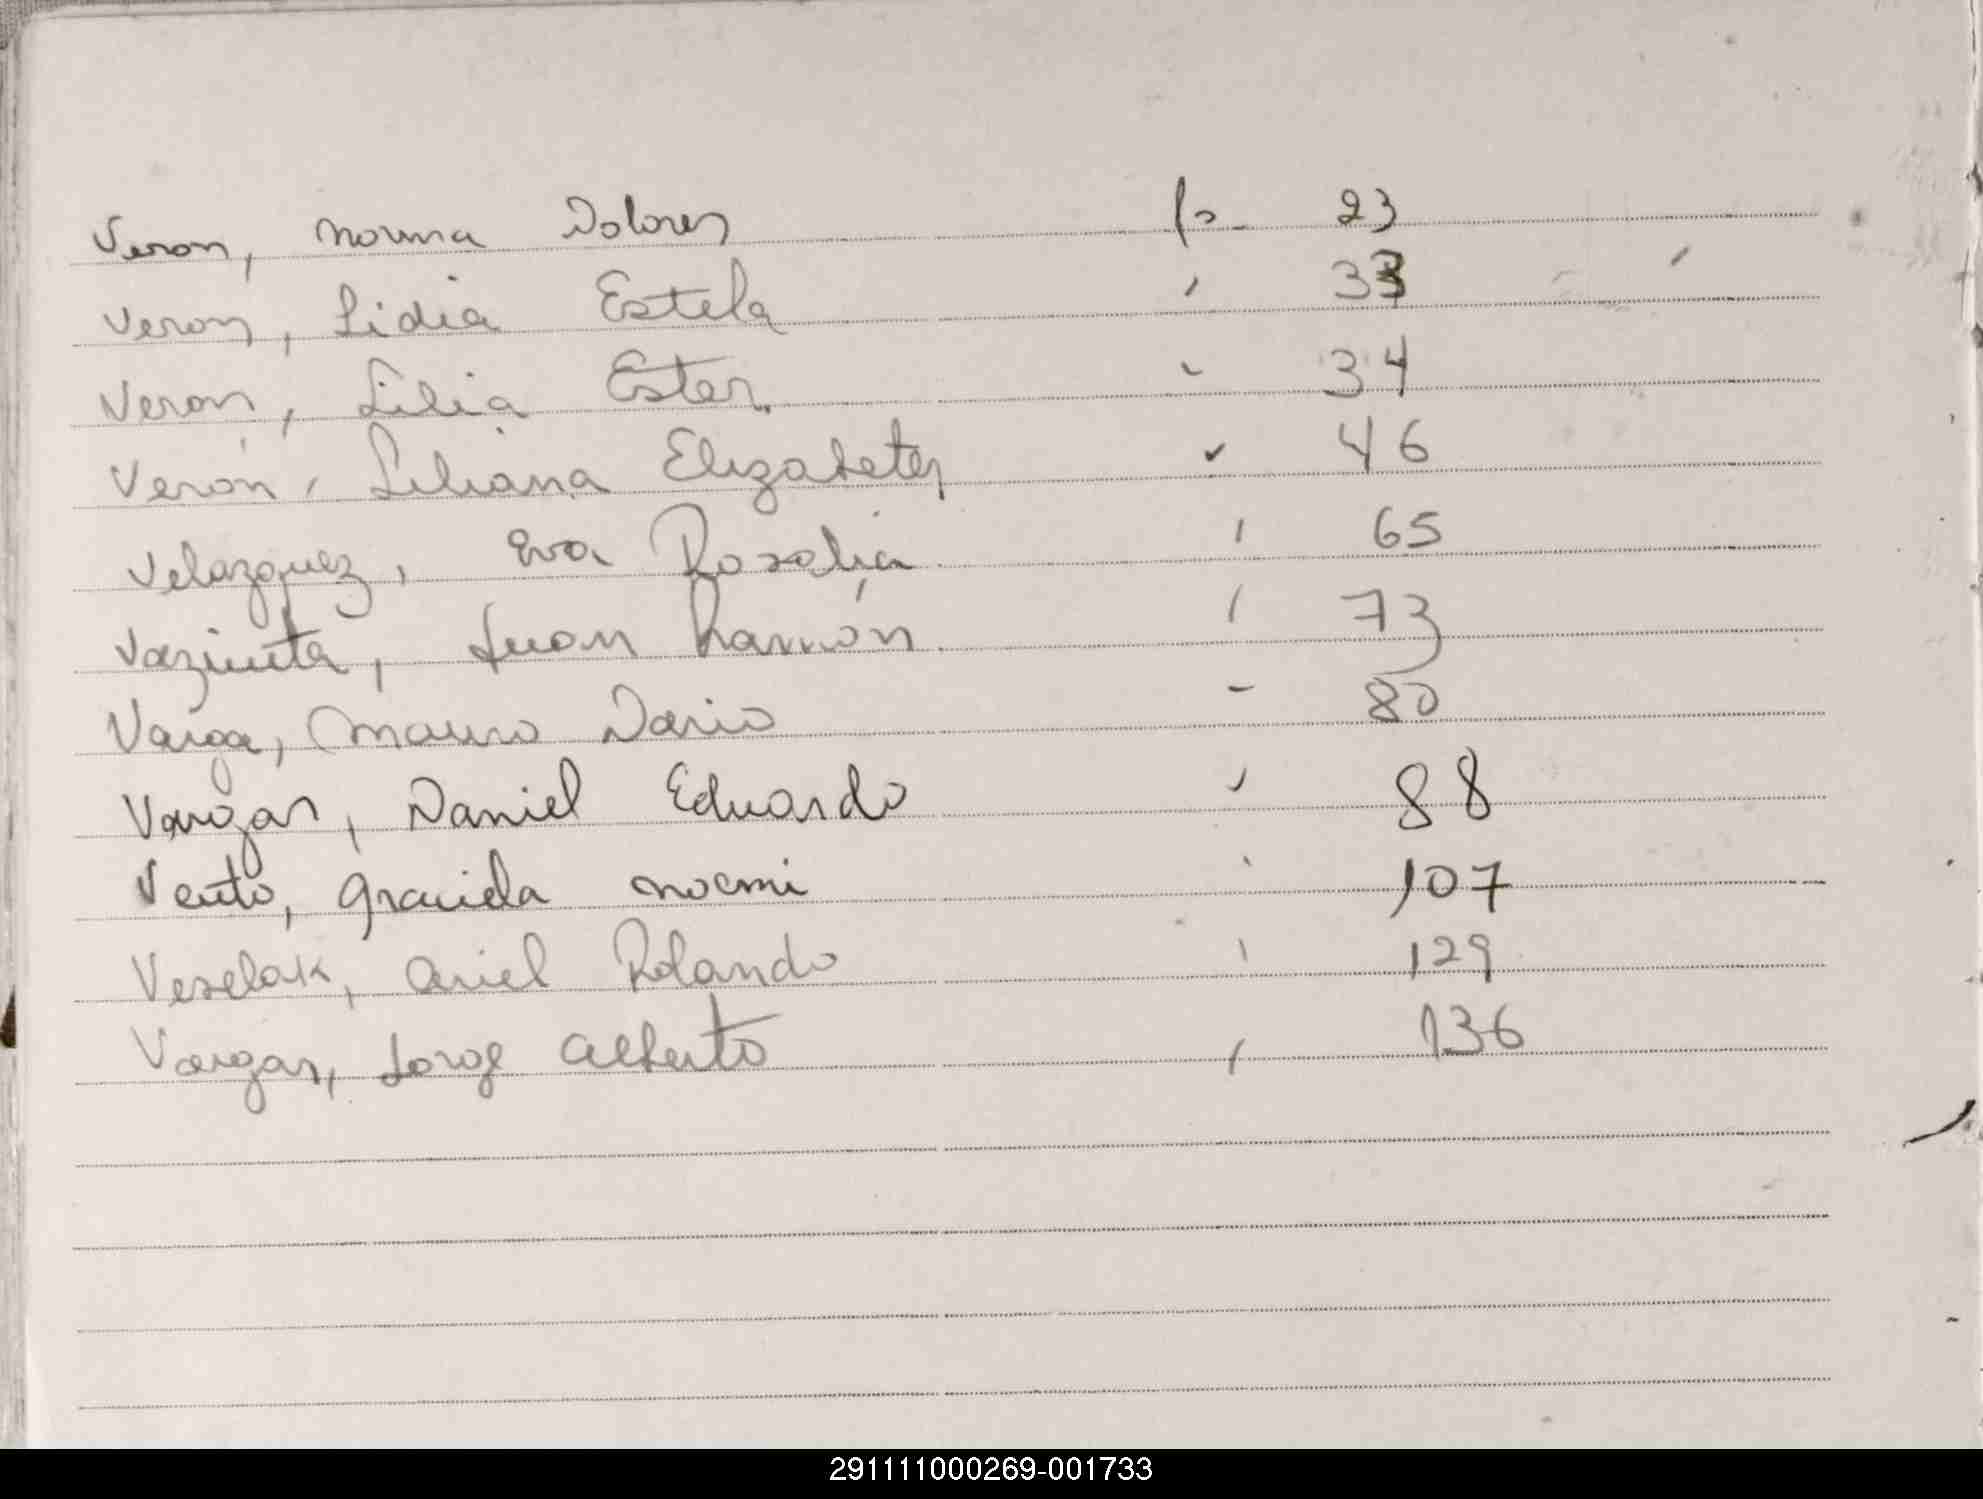 Veron, Norma Dolores fo 23
Veron, Lidia Estela " 33
Veron, Lilia Ester. " 34
Verón, Liliana Elizabeter " 46
Velazquez, Eva Rosalia " 65
Juan Ramón " 73
Varga, Mauro Dario " 80
Vargas, Daniel Eduardo " 88
Vento, Graciela Noemi " 107
Veselak, Ariel Rolando " 129
Vargas, Jorge Alberto " 136
291111000269-001733